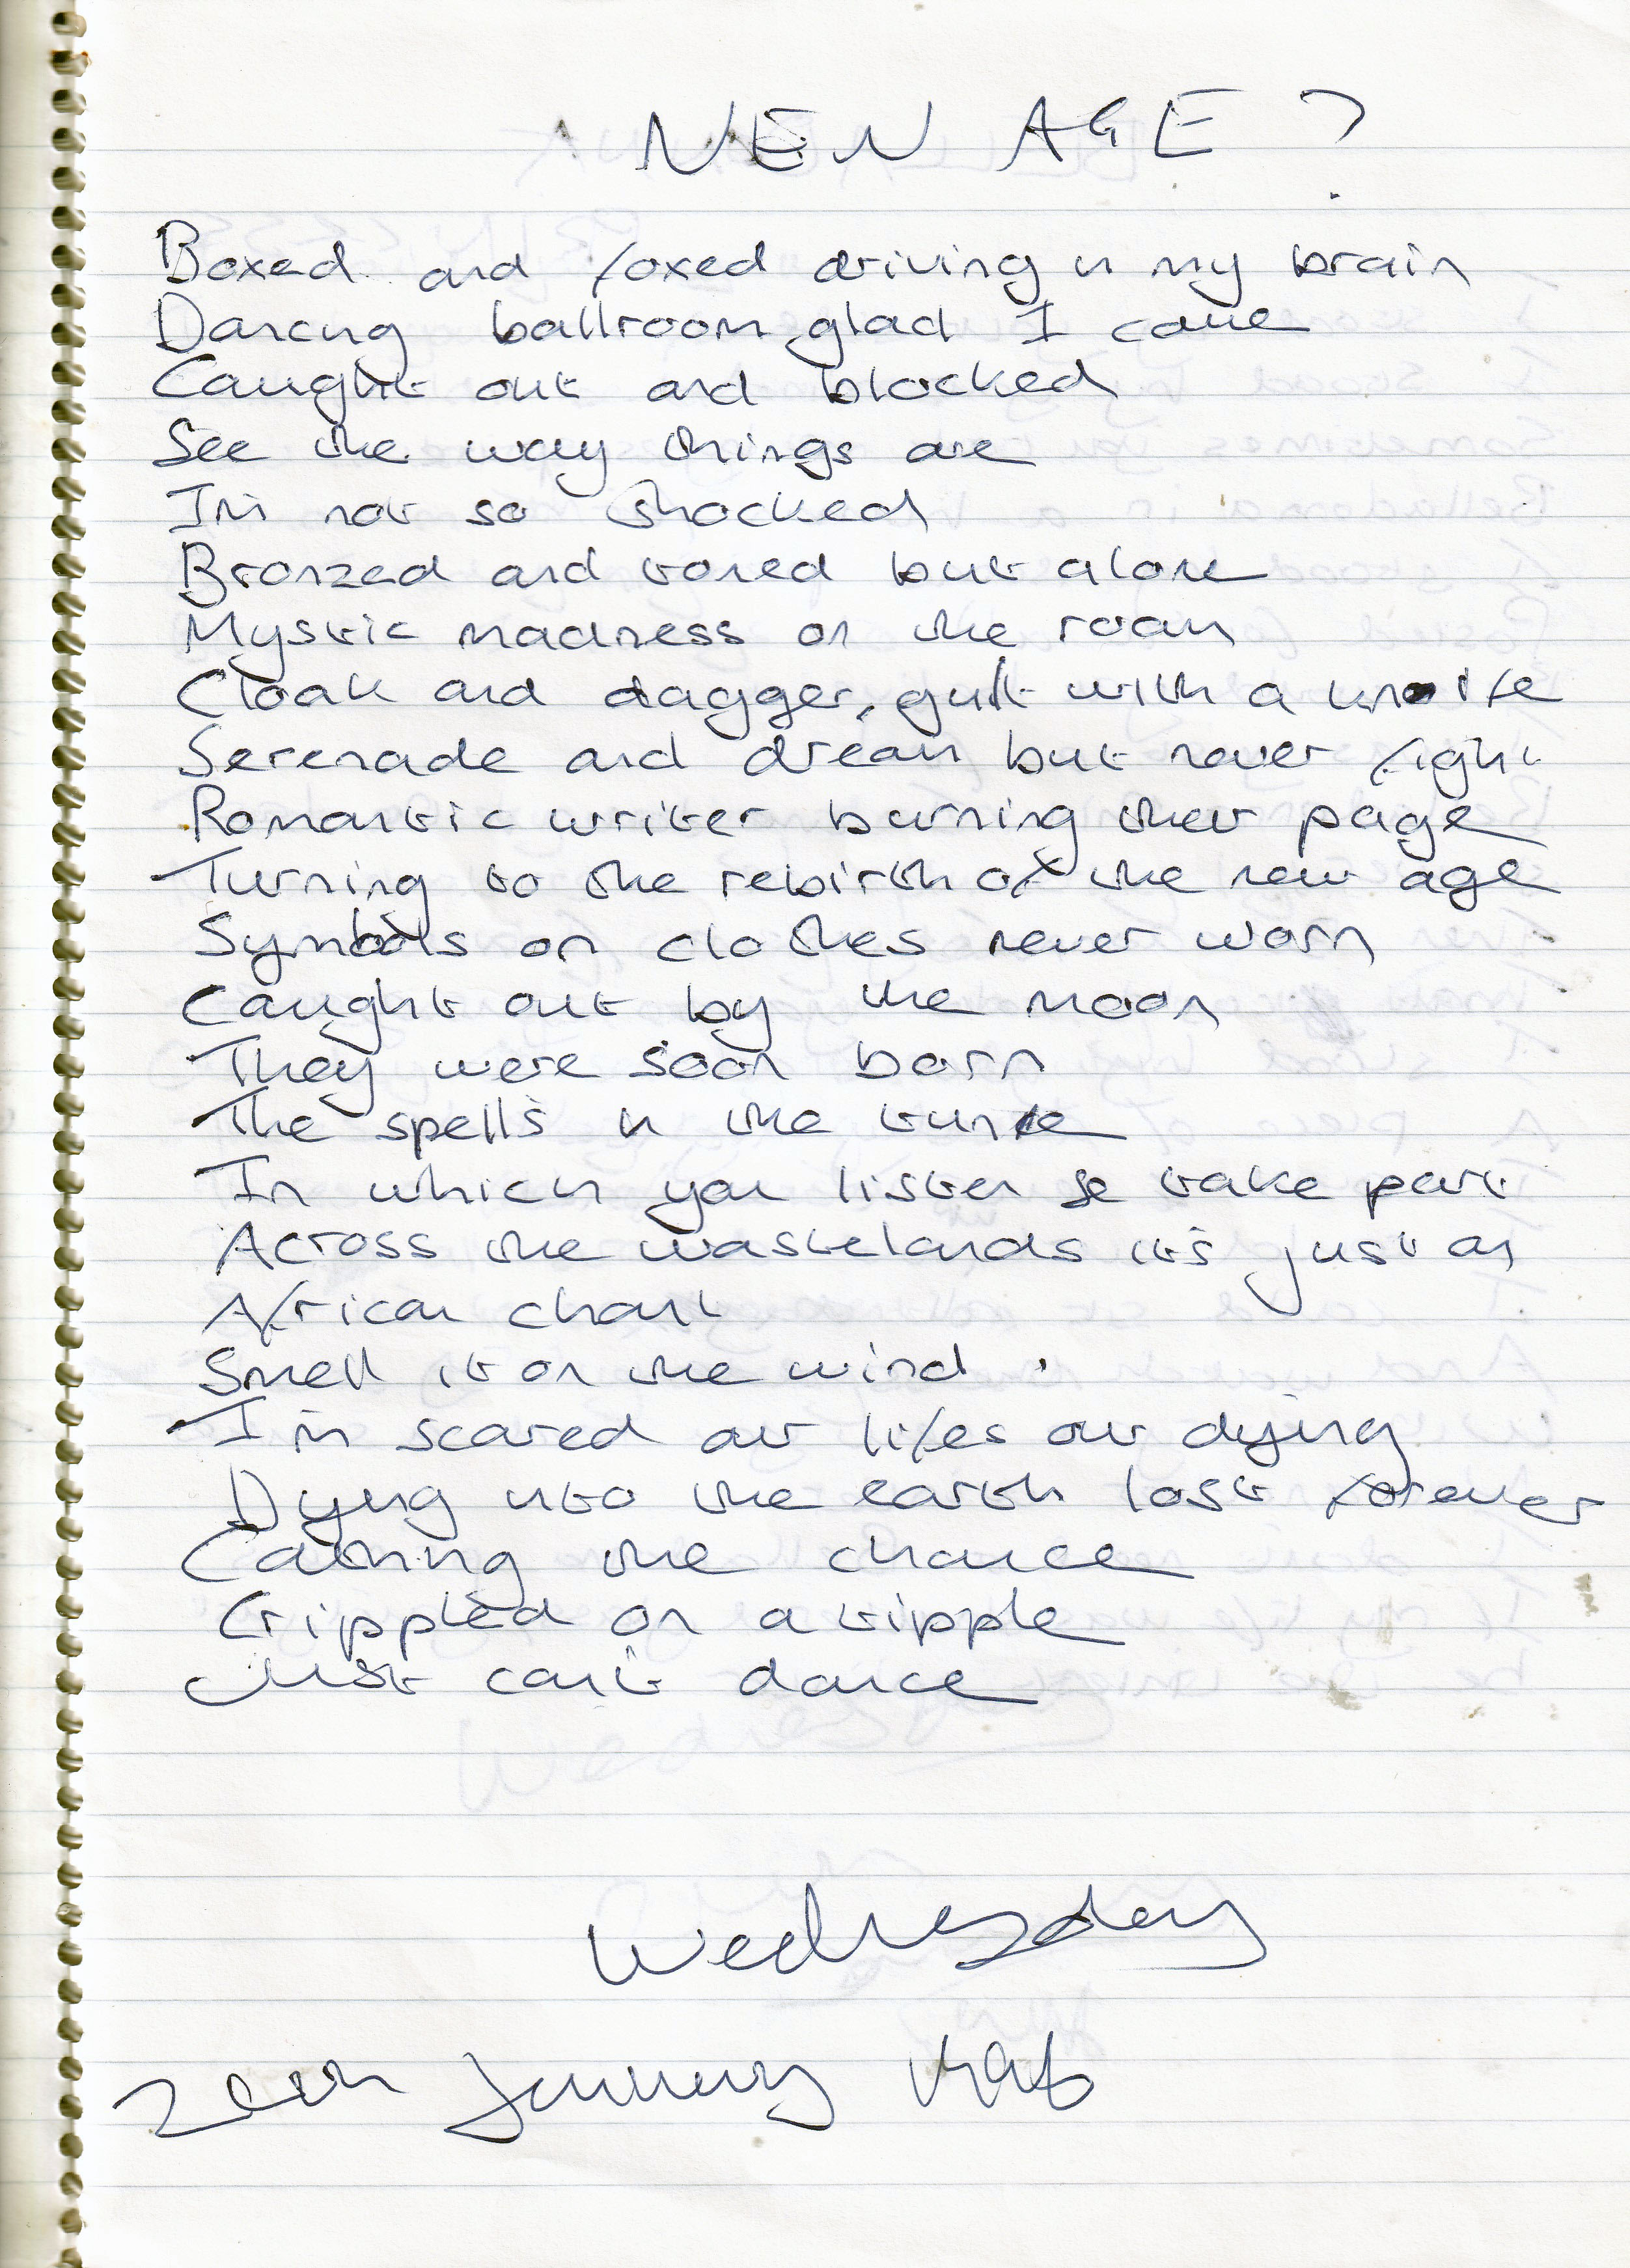 NEW AGE ?
Boxed and foxed driving in my brain
Dancing ballroom glad I came
Caught out and blocked
See the way things are
I'm not so shocked
Bronzed and toned but alone
Mystic madness on the roam
Cloak and dagger, guilt with a knife
Serenade and dream but never fight
Romantic writer burning their page
Turning to the rebirth of the new age
Symbols on clothes never worn
Caught out by the moon
They were soon born
The spell's in the
In which you listen & take part
Across the wastelands it's just an
African chant
Smell it on the wind .
I'm scared our lifes our dying
Dying into the earth lost forever
the chance
Crippled on a tipple
Just can't dance
Wednesday
January